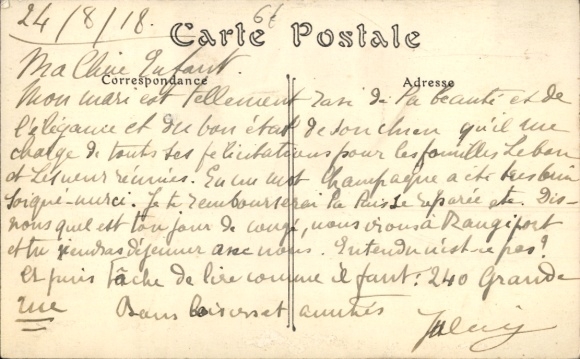 24/8/18.
Carte Postale
Ma Chère Enfant.
Correspondance
Adresse
Mon mari est tellement ravi de la beauté et de
l'élégance et du bon état de son chien qu'il me
charge de toutes ses félicitations pour les familles Lebon
et Lesueur réunies. En un mot Champagne a été très bien
soigné - merci. Je te rembourserai la Puisse reparée etc. Dis-
nous quel est ton jour de congé, nous irons à Rangiport
et tu viendras déjeuner avec nous. Entendu n'est-ce pas?
Et puis tâche de lire comme il faut: 240 Grande
rue
Bons baisers et amitiés